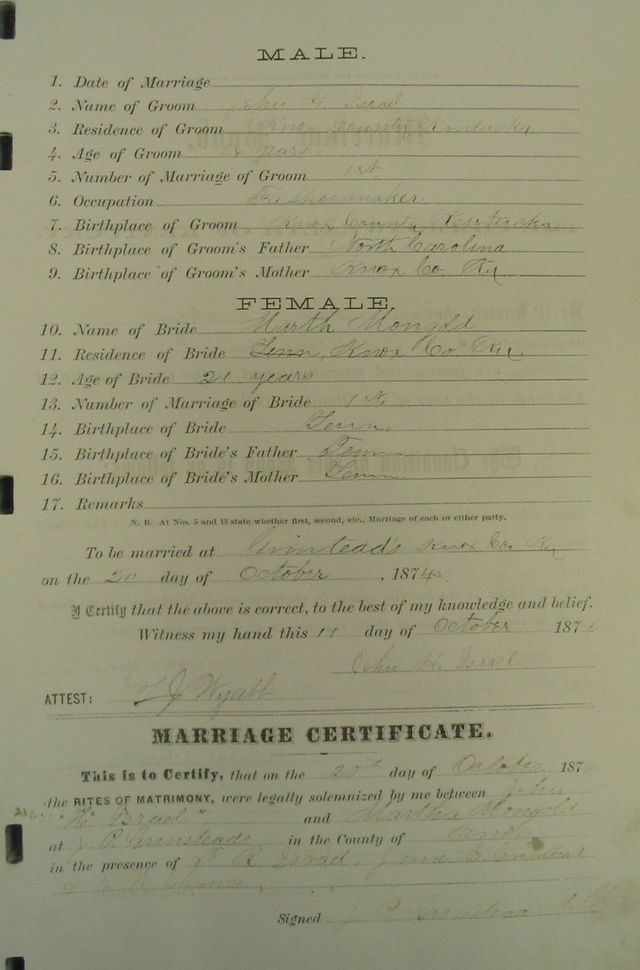 MALE.
1. Date of Marriage
2. Name of Groom John H. Israel
3. Residence of Groom Knox County Kentucky
4. Age of Groom years
5. Number of Marriage of Groom 1st.
6. Occupation
7. Birthplace of Groom Knox County Kentucky
8. Birthplace of Groom's Father North Carolina
9. Birthplace of Groom's Mother Knox Co. Ky.
FEMALE.
10. Name of Bride Marth Mongold
11. Residence of Bride Tenn, Knox Co. Ky.
12. Age of Bride 21 years
13. Number of Marriage of Bride 1st.
14. Birthplace of Bride Tenn.
15. Birthplace of Bride's Father Tenn
16. Birthplace of Bride's Mother Tenn
17. Remarks
N. B. At Nos. 5 and 13 state whether first, second, etc., Marriage of each or either party.
To be married at Grinstead's Knox Co. Ky
on the 20 day of October , 1874
I Certify that the above is correct, to the best of my knowledge and belief.
Witness my hand this day of October 187
John H. Israel
ATTEST: T J Wyatt
MARRIAGE CERTIFICATE.
This is to Certify, that on the 20th day of October 187
the RITES OF MATRIMONY, were legally solemnized by me between John
H. Israel and Martha Mongold
at J. P. Grinsteads in the County of Knox
in the presence of Israel,
Signed J. P. Grinstead